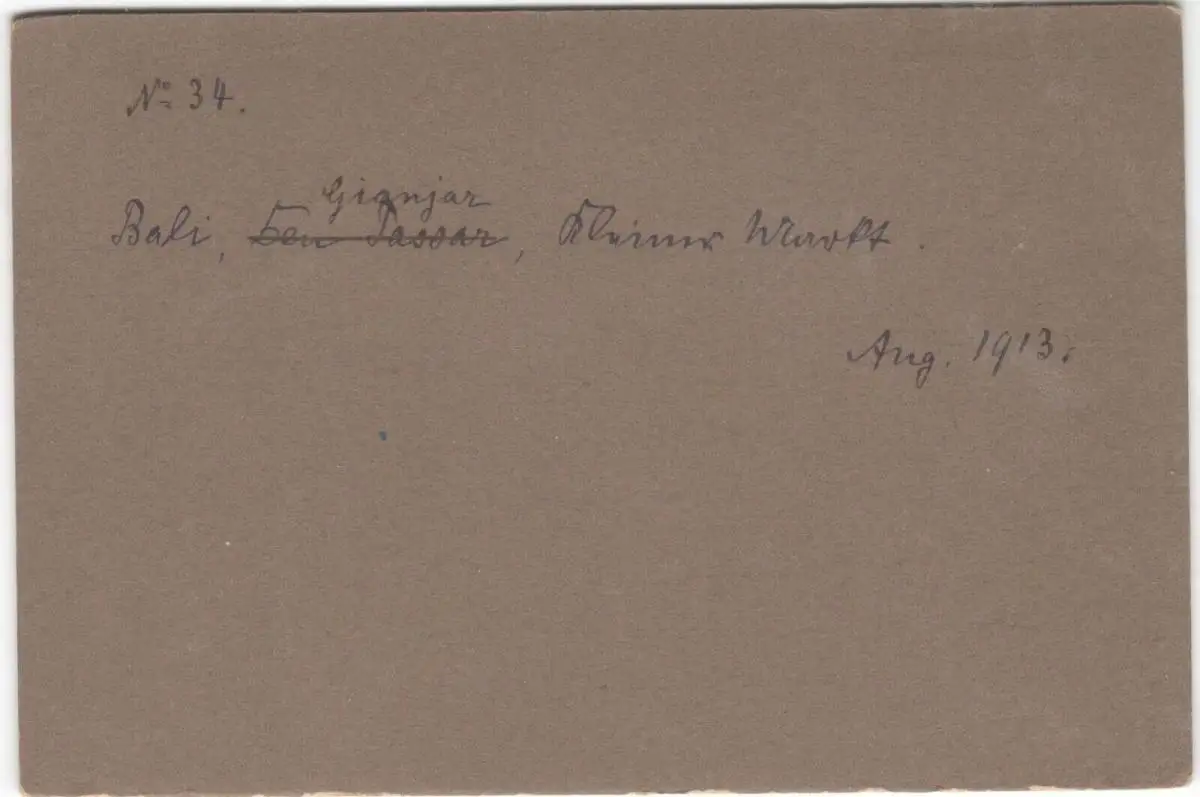 No 34.
Gianjar
Bali, Den Passar, Kleiner Markt.
Aug. 1913.